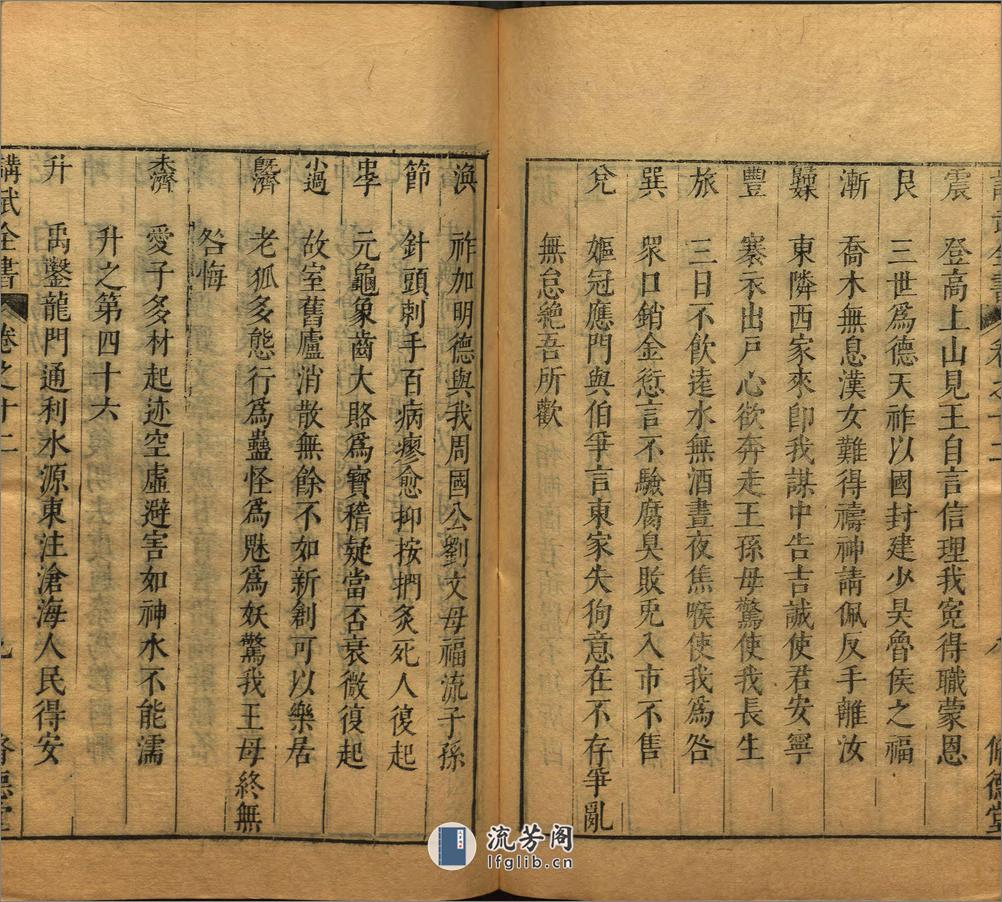 震　登高上山見王自言信理我寃得職蒙恩
艮　三世爲德天祚以國封建少昊魯侯之福
漸　喬木無息漢女難得禱神請佩反手離汝
歸妹　東隣西家來卽我謀中告吉誠使君安寧
豐　褰衣出戸心欲奔走王孫母驚使我長生
旅　三日不飮遠水無酒晝夜焦喉使我爲咎
巽　衆口銷金愆言不驗腐臭敗兎入市不售
兌　嫗冠應門與伯爭言東家失狗意在不存爭亂
無怠絶吾所歡
渙　祚加明德與我周國公劉文母福流子孫
節　針頭刺手百病瘳愈抑按捫灸死人復起
中孚　元龜象齒大賂爲寳稽疑當否衰微復起
小過　故室舊廬消散無餘不如新創可以樂居
旣濟　老狐多態行爲蠱怪爲魅爲妖驚我王母終無
咎悔
未濟　愛子多材起迹空虛避害如神水不能濡
升之第四十六
升　禹鑿龍門通利水源東注滄海人民得安
講武全書 卷之十二
脩德堂
流芳阁
lfglib.cn